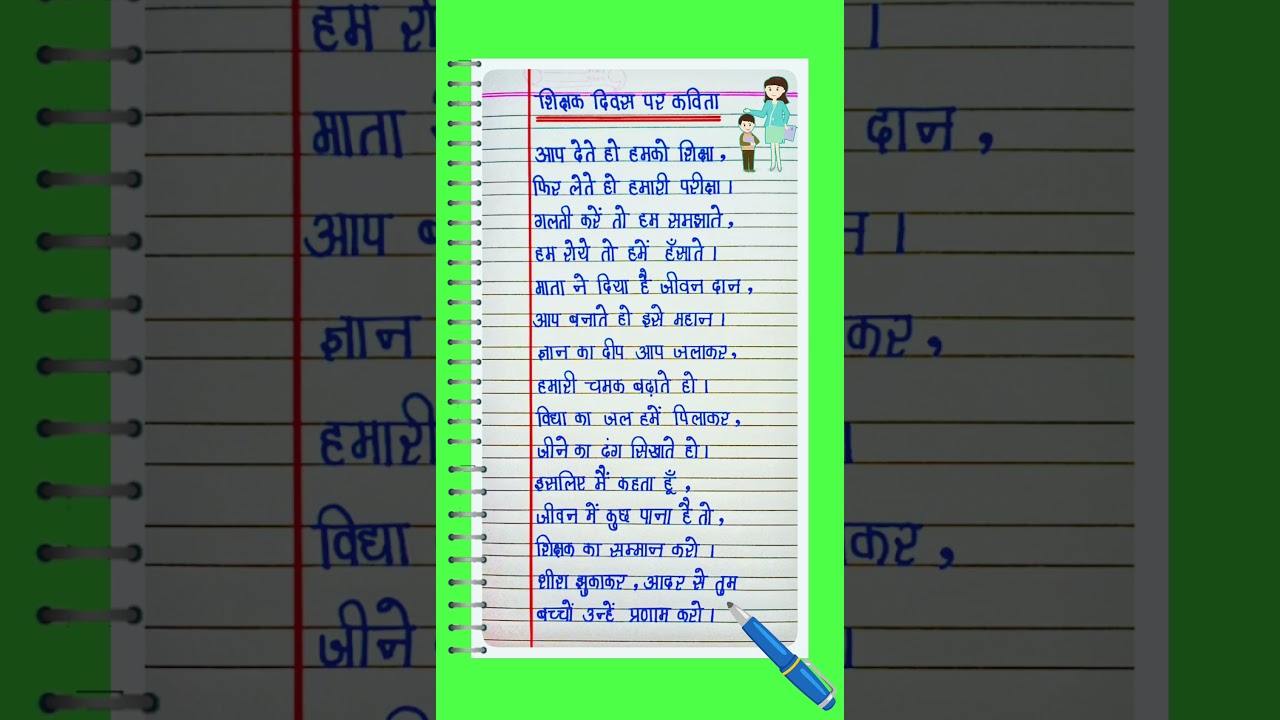 शिक्षक दिवस पर कविता
आप देते हो हमको शिक्षा,
फिर लेते हो हमारी परीक्षा।
गलती करें तो हम समझाते,
हम रोये तो हमें हँसाते।
माता ने दिया है जीवन दान,
आप बनाते हो इसे महान।
ज्ञान का दीप आप जलाकर,
हमारी चमक बढ़ाते हो।
विद्या का जल हमें पिलाकर,
जीने का ढंग सिखाते हो।
इसलिए मैं कहता हूँ,
जीवन में कुछ पाना है तो,
शिक्षक का सम्मान करो।
शीश झुकाकर, आदर से तुम
बच्चों उन्हें प्रणाम करो।